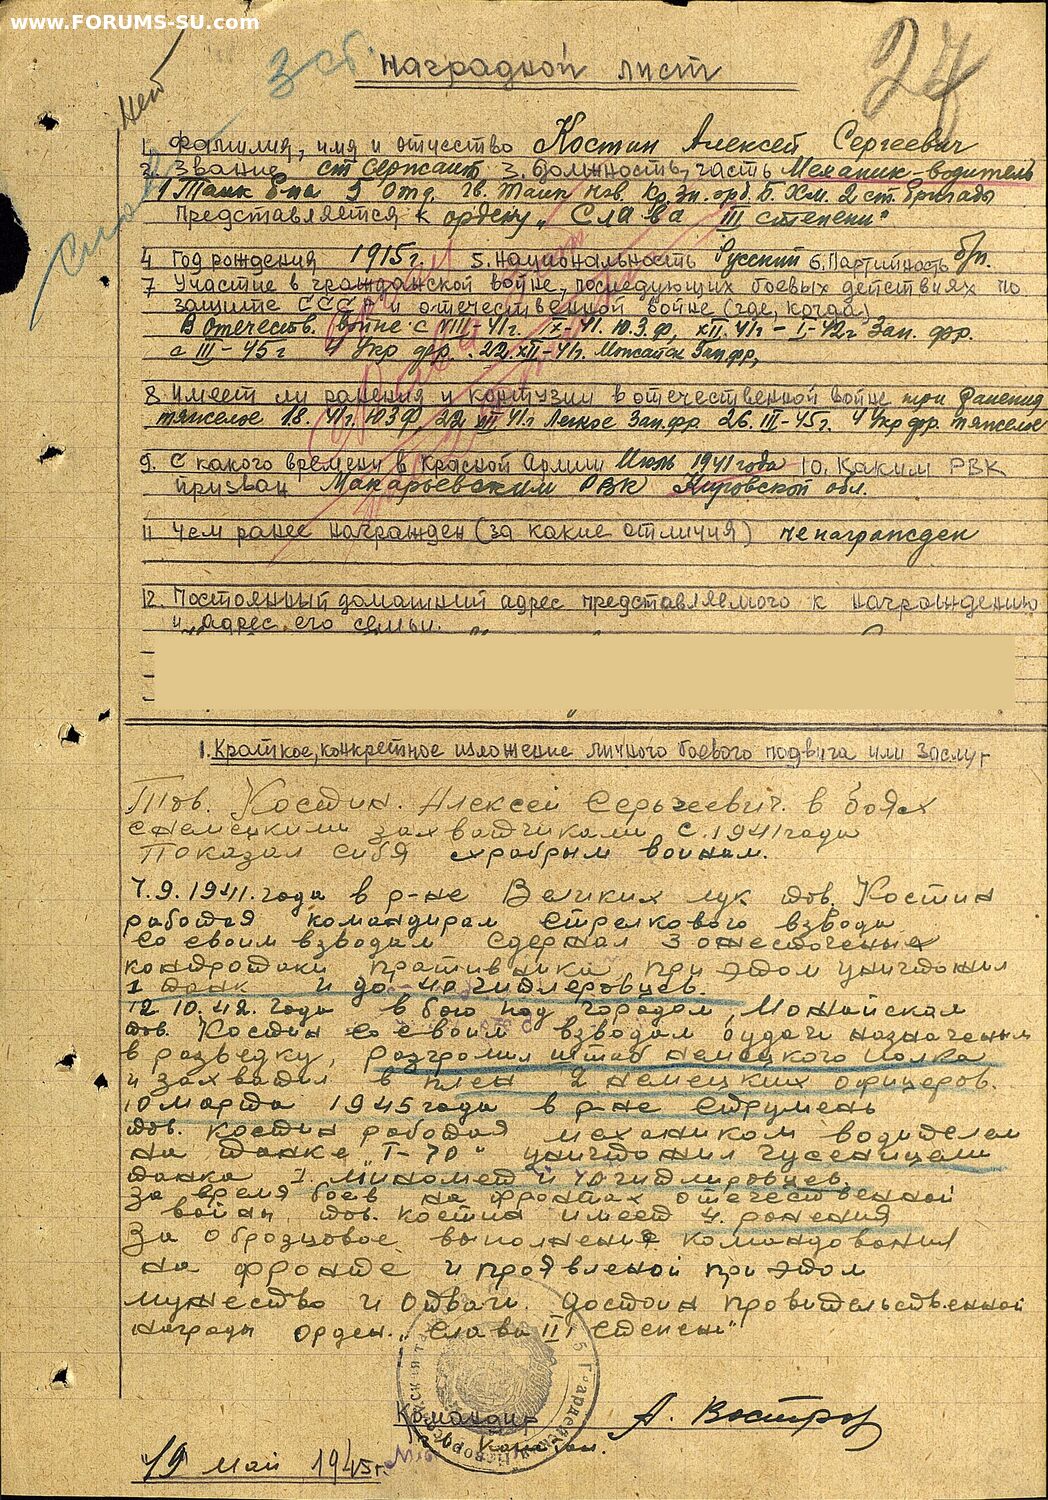 www.FORUMS-SU.com
27
Наградной лист
1. Фамилия, имя и отчество Костин Алексей Сергеевич
2. Звание ст сержант 3. Должность, часть Механик-водитель
1 Танк б-на 5 отд. гв. танк нов. Кр. Зн. орд. Б. Хм. 2 ст. бригады
Представляется к ордену „Слава III степени"
4 Год рождения 1915 г. 5. Национальность Русский 6. Партийность б/п.
7 Участие в гражданской войне, последующих боевых действиях по
защите СССР и отечественной войне (где, когда)
В Отечеств. Войне с VIII-41 г. IX-41. Ю.З.Ф, XII.41 г - I-42 г Зап. фр.
с III-45 г 4 Укр фр. 22.XII-41 г. Можайск Зап фр,
8 Имеет ли ранения и контузии в отечественной войне три ранения
тяжелое 18. 41 г. Ю.З.Ф, 22 XII 41 г Легкое Зап. фр. 26.III-45 г. 4 Укр фр. тяжелое
9. С какого времени в Красной Армии Июль 1941 года 10. Каким РВК
призван Макарьевским РВК Кировской обл.
11 Чем ранее награжден (за какие отличия) не награжден
12. Постоянный домашний адрес представляемого к награждению
и адрес его семьи.
1. Краткое, конкретное изложение личного боевого подвига или заслуг
Тов. Костин. Алексей Серьгеевич. в боях
с немецкими захватчиками с. 1941 года
Показал сибя храбрым воинам.
7.9.1941. года в р-не Великих лук тов. Костин
работая командирам стрелкового взвода
со своим взводам сдержал 3 ожесточеных
контротаки пративника, при этом уничтожил
1 танк и до-40 гидлеровцев.
12 10.42. года в бою под городом, Можайскам
тов. Костин со своим взводам будачи назначеным
в разведку, разгромил штаб немецкого полка
и захватил в плен 2 немецких офицеров.
10 марта 1945 года в р-не Струмень
тов. Костин работая механиком водителем
на танке „Т-70" уничтожил гусеницами
танка 1 миномет и 40 гидлировцев.
За время боев на фронтах отечественной
войны тов. Костин имеет 4. ронения
За оброзцовое выполнение комондования
на фронте и проявленой при этом
мужество и отваги. достоин провительственной
награды орден. „Слава III степени"
Командир
А. Востров
19 май 1945 г.